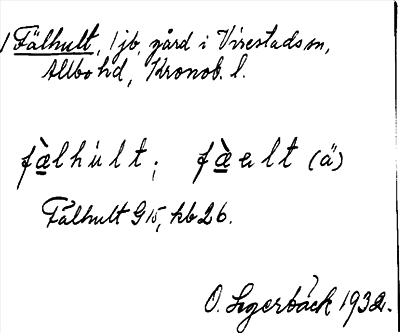 1 Fälhult, 1 jb, gård i Virestads sn,
Allbo hd, Kronob. l.
fàlhúlt; fàelt (ä)
Fålhult G15, hb 26.
O. Segerbäck 1932.